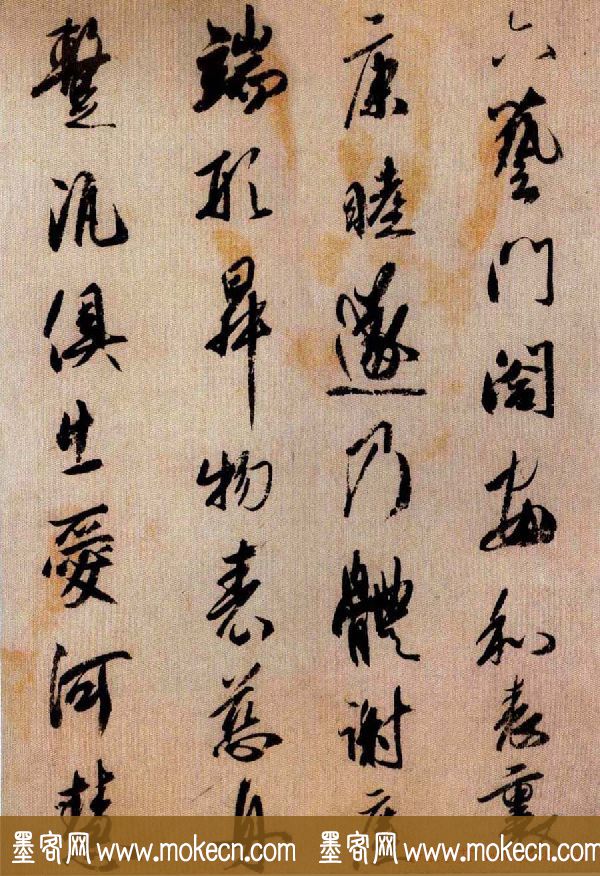 六藝門閤安和
康睦遂乃體謝
端形昇物表慈
俱生愛河
墨客网 www.mokecn.com 墨客网 www.mokecn.com